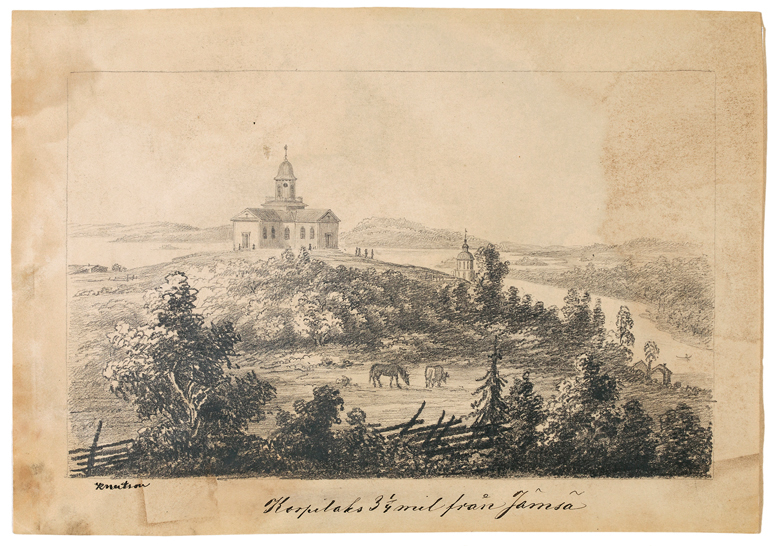 Knutson
Korpilaks 3 1/4 mil från Jämsä